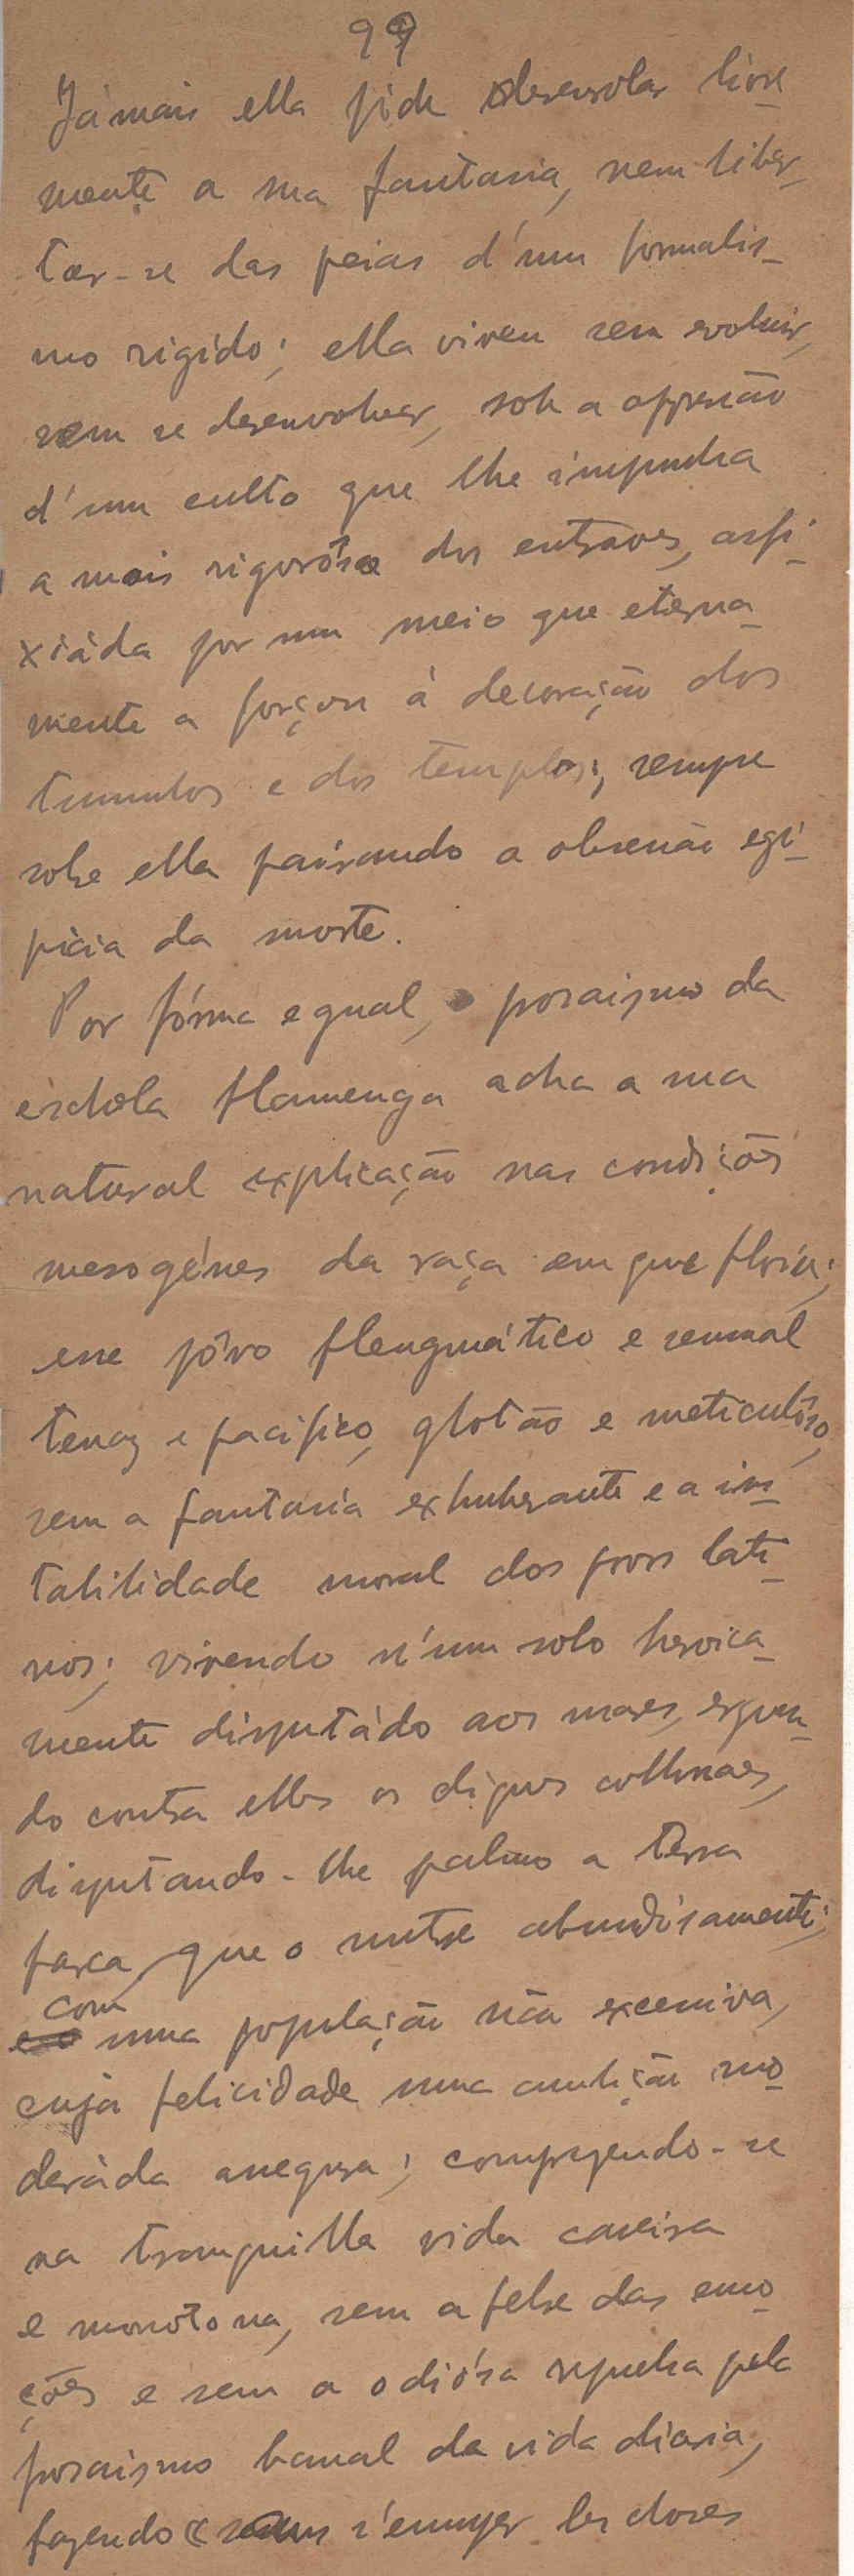 99
Jámais ella pôde desenrolar livre
mente a sua fantasia, nem liber-
tar-se das peias d'um formalis-
mo rigído; ella viveu sem evoluir,
sem se desenvolver, sob a oppressão
d'um culto que lhe impunha
a mais rigorósa dos entraves, asfi-
xiáda por um meio que eterna-
mente a forçou á decoração dos
tumulos e dos templos; sempre
sobre ella pairando a obsessão egi-
picia da morte.
Por fórma egual, o prosaismo da
eschola flamenga acha a sua
natural explicação nas condições
mesogénes da raça em que floriu;
esse pôvo flengmático e sensual
tenaz e pacifico, glotão e meticulôso,
sem a fantasia exhuberante e a ins-
tabilidade moral dos povos lati-
nos; vivendo n'um solo heroica-
mente disputádo aos mares, erguen-
do contra elles os diques collossaes,
disputando-lhe palmo a terra
parca, que o nutre abundósamente;
com uma população não excessiva,
cuja felicidade uma ambição mo-
deráda assegura; comprazendo-se
na tranquilla vida caseira
e monotona, sem a febre das emo-
ções e sem a odiósa repulsa pelo
prosaismo banal da vida diaria,
fazendo « sans s'ennuyer les choses